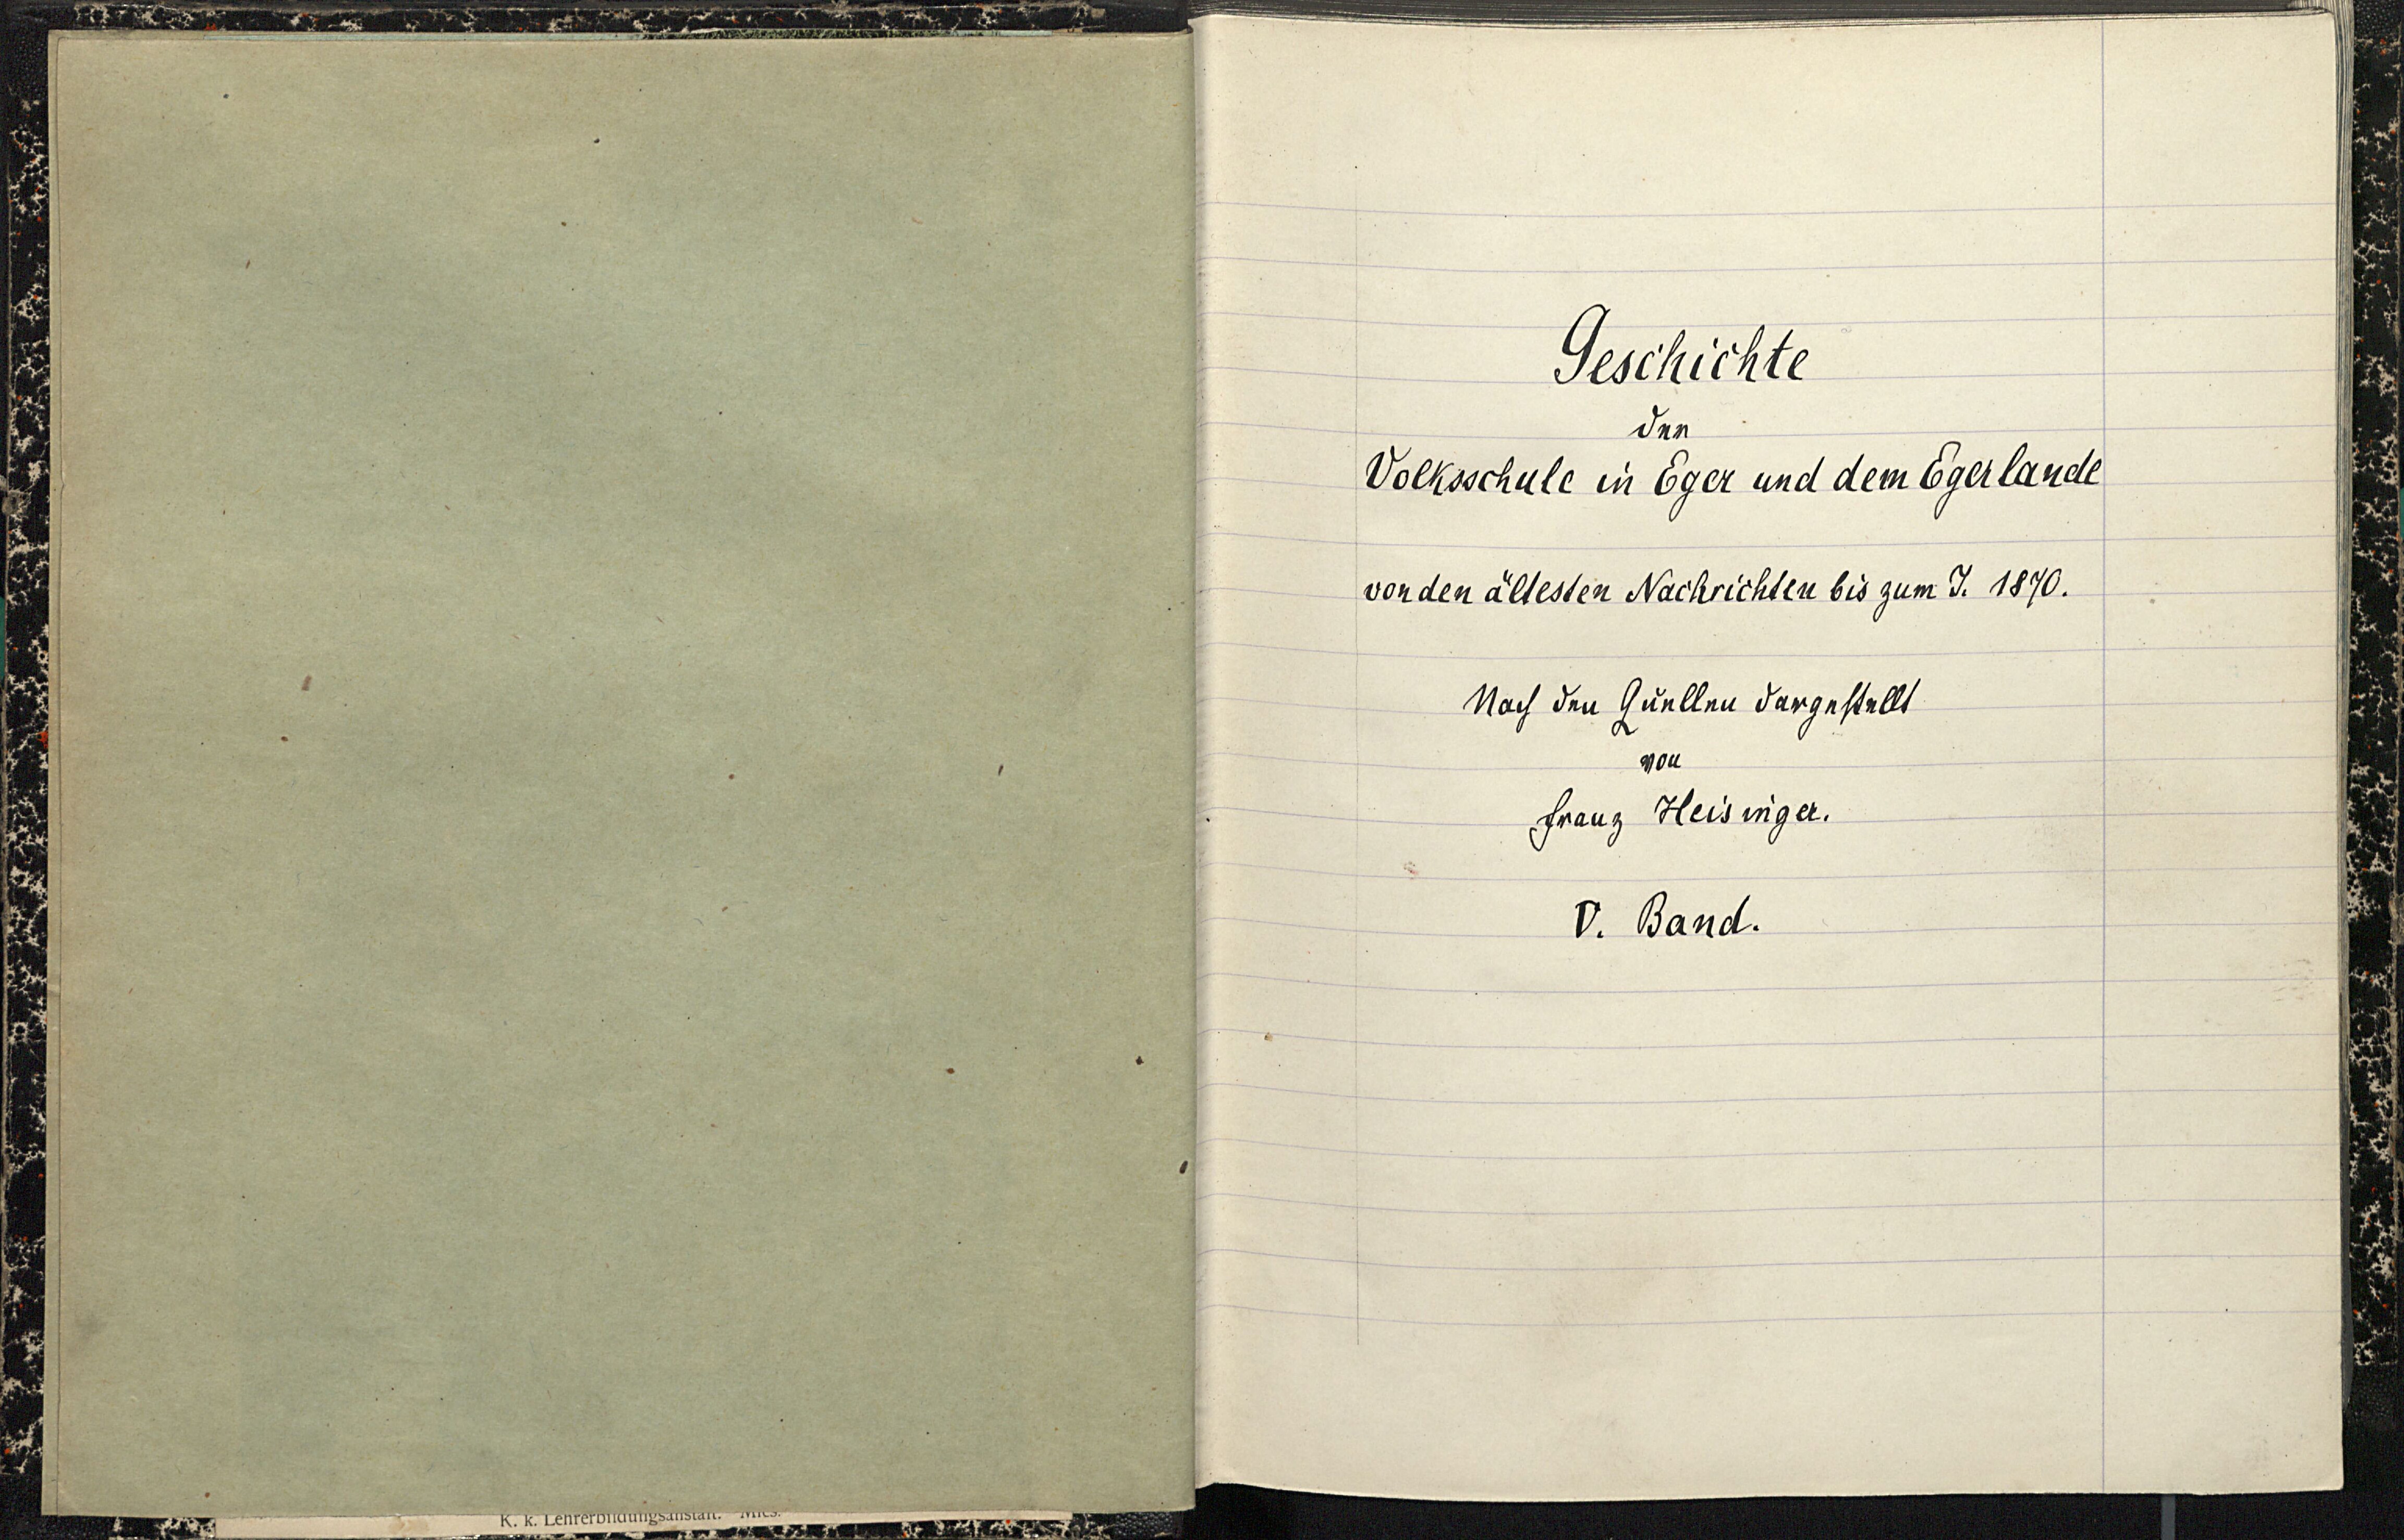 Geschichte
der
Volksschule in Eger und dem Egerlande
von den ältesten Nachrichten bis zum J. 1870.
Nach den Quellen dargestellt
von
Franz Heisinger.
V. Band.
K. k. Lehrerbildungsanstalt. Mies.